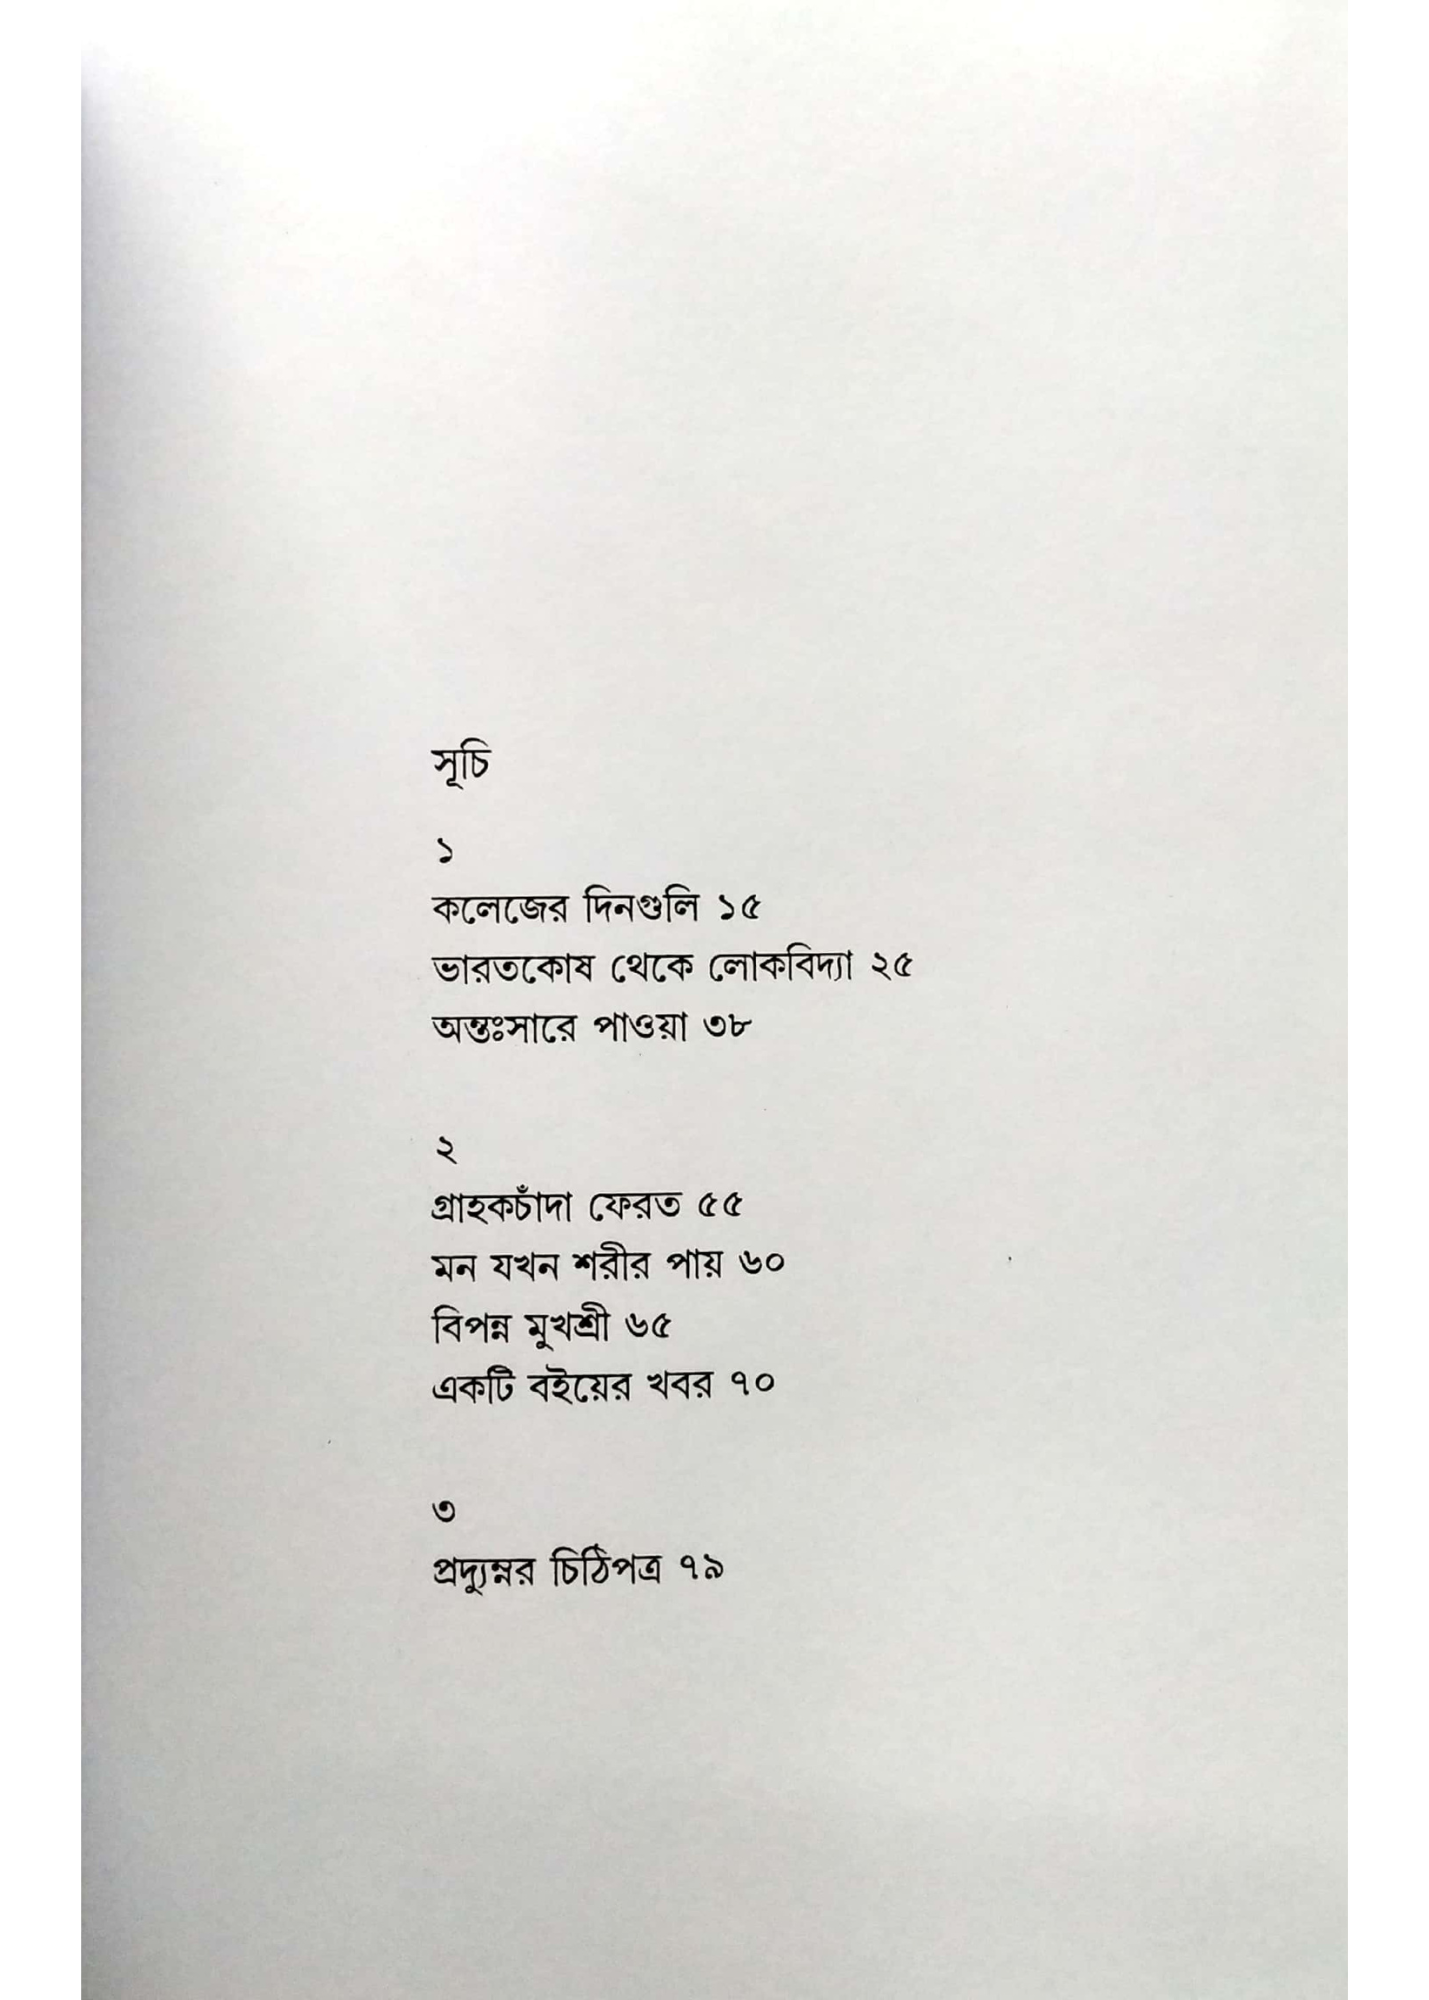 সূচি
১
কলেজের দিনগুলি ১৫
ভারতকোষ থেকে লোকবিদ্যা ২৫
অন্তঃসারে পাওয়া ৩৮
২
গ্রাহকচাঁদা ফেরত ৫৫
মন যখন শরীর পায় ৬০
বিপন্ন মুখশ্রী ৬৫
একটি বইয়ের খবর ৭০
৩
প্রদ্যুম্নর চিঠিপত্র ৭৯